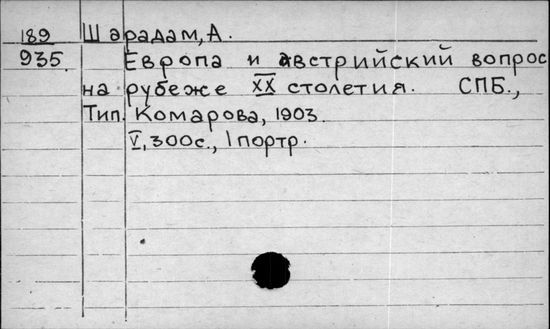 189 Шарадам, А.
935 Европа и австрийский вопрос
на рубеже XX столетия. СПБ.,
Тип. Комарова, 1903.
V, 300с., 1 портр.